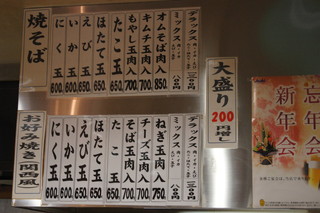 焼そば
デラックス
ミックス 八〇〇
オムそば肉入 850
キムチ玉肉入 700
もやし玉肉入 700
たこ玉 650
ほたて玉 650
えび玉 650
いか玉 600
にく玉 600
お好み焼き関西風
デラックス
ミックス 八〇〇
ねぎ玉肉入 750
チーズ玉肉入 700
そば玉肉入 700
たこ玉 650
ほたて玉 650
えび玉 650
いか玉 600
にく玉 600
大盛り
200
円増し
忘年会
新年会